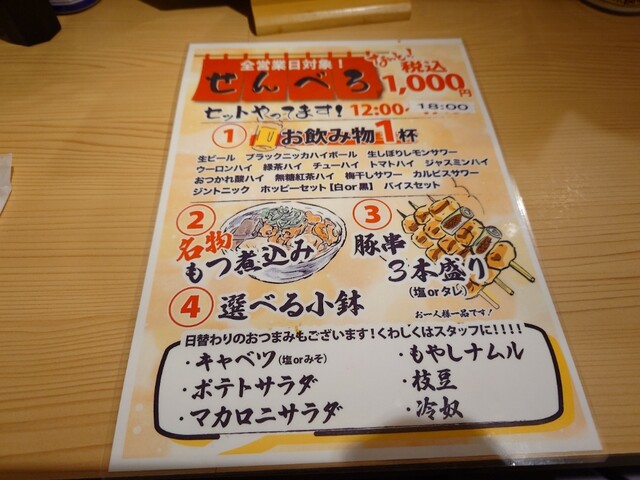 全営業日対象!
せんべろ
なんと!
税込
1,000円
セットやってます! 12:00-18:00
① お飲み物1杯
生ビール ブラックニッカハイボール 生しぼりレモンサワー
ウーロンハイ 緑茶ハイ チューハイ トマトハイ ジャスミンハイ
おつかれ酸ハイ 無糖紅茶ハイ 梅干しサワー カルピスサワー
ジントニック ホッピーセット[白or黒] バイスセット
②
名物
もつ煮込み
③
豚串
3本盛り
(塩orタレ)
④ 選べる小鉢
お一人様一品です!
日替わりのおつまみもございます!くわしくはスタッフに!!!!
・キャベツ(塩orみそ)
・ポテトサラダ
・マカロニサラダ
・もやしナムル
・枝豆
・冷奴